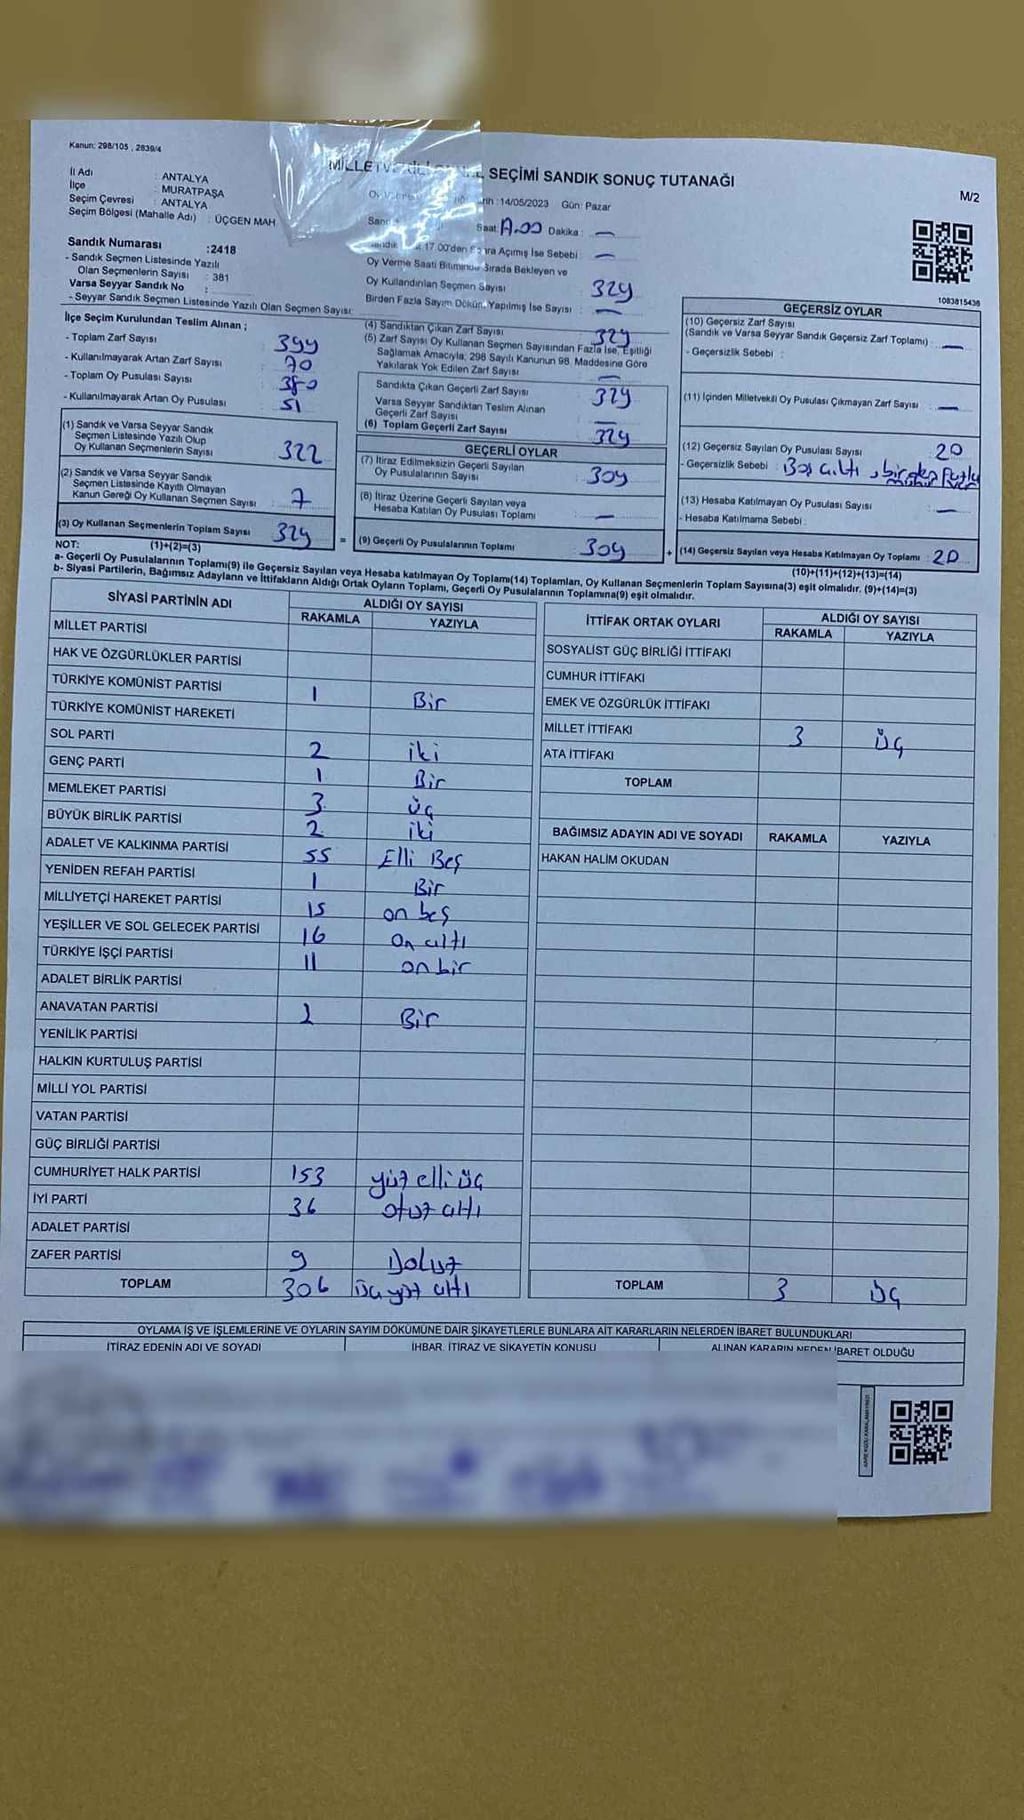 Kanun: 298/105 , 2839/4
SEÇİMİ SANDIK SONUÇ TUTANAĞI
M/2
İl Adı : ANTALYA
İlçe : MURATPAŞA
Seçim Çevresi : ANTALYA
Seçim Bölgesi (Mahalle Adı) : ÜÇGEN MAH.
:14/05/2023 Gün: Pazar
Saat: Dakika: —
Sandık Numarası :2418
- Sandık Seçmen Listesinde Yazılı
Olan Seçmenlerin Sayısı : 381
Varsa Seyyar Sandık No :
- Seyyar Sandık Seçmen Listesinde Yazılı Olan Seçmen Sayısı:
17.00'den Sonra Açımış İse Sebebi —
Oy Verme Saati Bitiminde Sırada Bekleyen ve
Oy Kullandırılan Seçmen Sayısı : 329
Birden Fazla Sayım Döküm Yapılmış İse Sayısı : —
1083815436
İlçe Seçim Kurulundan Teslim Alınan ;
- Toplam Zarf Sayısı : 399
- Kullanılmayarak Artan Zarf Sayısı : 70
- Toplam Oy Pusulası Sayısı : 380
- Kullanılmayarak Artan Oy Pusulası : 51
(1) Sandık ve Varsa Seyyar Sandık
Seçmen Listesinde Yazılı Olup
Oy Kullanan Seçmenlerin Sayısı : 322
(2) Sandık ve Varsa Seyyar Sandık
Seçmen Listesinde Kayıtlı Olmayan
Kanun Gereği Oy Kullanan Seçmen Sayısı : 7
(3) Oy Kullanan Seçmenlerin Toplam Sayısı 329
(1)+(2)=(3)
(4) Sandıktan Çıkan Zarf Sayısı : 329
(5) Zarf Sayısı Oy Kullanan Seçmen Sayısından Fazla İse, Eşitliği
Sağlamak Amacıyla, 298 Sayılı Kanunun 98. Maddesine Göre
Yakılarak Yok Edilen Zarf Sayısı : —
Sandıkta Çıkan Geçerli Zarf Sayısı : 329
Varsa Seyyar Sandıktan Teslim Alınan
Geçerli Zarf Sayısı :
(6) Toplam Geçerli Zarf Sayısı : 329
GEÇERLİ OYLAR
(7) İtiraz Edilmeksizin Geçerli Sayılan
Oy Pusulalarının Sayısı : 309
(8) İtiraz Üzerine Geçerli Sayılan veya
Hesaba Katılan Oy Pusulası Toplamı : —
= (9) Geçerli Oy Pusulalarının Toplamı : 309
GEÇERSİZ OYLAR
(10) Geçersiz Zarf Sayısı
(Sandık ve Varsa Seyyar Sandık Geçersiz Zarf Toplamı) : —
- Geçersizlik Sebebi :
(11) İçinden Milletvekili Oy Pusulası Çıkmayan Zarf Sayısı : —
(12) Geçersiz Sayılan Oy Pusulası Sayısı : 20
- Geçersizlik Sebebi
(13) Hesaba Katılmayan Oy Pusulası Sayısı : —
- Hesaba Katılmama Sebebi :
+ (14) Geçersiz Sayılan veya Hesaba Katılmayan Oy Toplamı : 20
(10)+(11)+(12)+(13)=(14)
NOT:
a- Geçerli Oy Pusulalarının Toplamı(9) ile Geçersiz Sayılan veya Hesaba katılmayan Oy Toplamı(14) Toplamları, Oy Kullanan Seçmenlerin Toplam Sayısına(3) eşit olmalıdır. (9)+(14)=(3)
b- Siyasi Partilerin, Bağımsız Adayların ve İttifakların Aldığı Ortak Oyların Toplamı, Geçerli Oy Pusulalarının Toplamına(9) eşit olmalıdır.
SİYASİ PARTİNİN ADI ALDIĞI OY SAYISI
RAKAMLA YAZIYLA
MİLLET PARTİSİ
HAK VE ÖZGÜRLÜKLER PARTİSİ
TÜRKİYE KOMÜNİST PARTİSİ 1 Bir
TÜRKİYE KOMÜNİST HAREKETİ
SOL PARTİ 2 iki
GENÇ PARTİ 1 Bir
MEMLEKET PARTİSİ 3 üç
BÜYÜK BİRLİK PARTİSİ 2 iki
ADALET VE KALKINMA PARTİSİ 55 Elli Beş
YENİDEN REFAH PARTİSİ 1 Bir
MİLLİYETÇİ HAREKET PARTİSİ 15 on beş
YEŞİLLER VE SOL GELECEK PARTİSİ 16 On altı
TÜRKİYE İŞÇİ PARTİSİ 11 on bir
ADALET BİRLİK PARTİSİ
ANAVATAN PARTİSİ 1 Bir
YENİLİK PARTİSİ
HALKIN KURTULUŞ PARTİSİ
MİLLİ YOL PARTİSİ
VATAN PARTİSİ
GÜÇ BİRLİĞİ PARTİSİ
CUMHURİYET HALK PARTİSİ 153 yüz elli üç
İYİ PARTİ 36 otuz altı
ADALET PARTİSİ
ZAFER PARTİSİ 9 Dokuz
TOPLAM 306 üç yüz altı
İTTİFAK ORTAK OYLARI ALDIĞI OY SAYISI
RAKAMLA YAZIYLA
SOSYALİST GÜÇ BİRLİĞİ İTTİFAKI
CUMHUR İTTİFAKI
EMEK VE ÖZGÜRLÜK İTTİFAKI
MİLLET İTTİFAKI 3 üç
ATA İTTİFAKI
TOPLAM
BAĞIMSIZ ADAYIN ADI VE SOYADI RAKAMLA YAZIYLA
HAKAN HALİM OKUDAN
TOPLAM 3 üç
OYLAMA İŞ VE İŞLEMLERİNE VE OYLARIN SAYIM DÖKÜMÜNE DAİR ŞİKAYETLERLE BUNLARA AİT KARARLARIN NELERDEN İBARET BULUNDUKLARI
İTİRAZ EDENİN ADI VE SOYADI İHBAR, İTİRAZ VE ŞİKAYETİN KONUSU ALINAN KARARIN NEDEN İBARET OLDUĞU